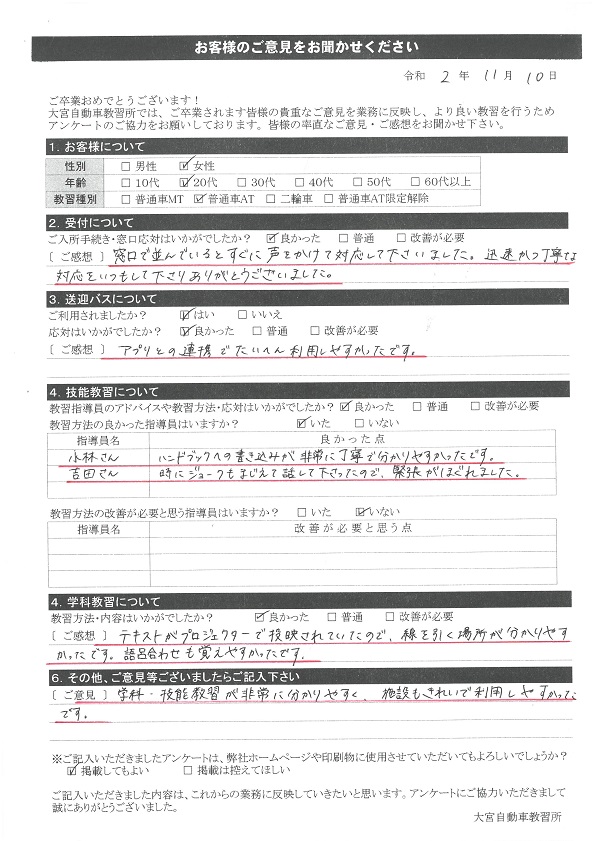 お客様のご意見をお聞かせください
令和 2 年 11 月 10 日
ご卒業おめでとうございます！
大宮自動車教習所では、ご卒業されます皆様の貴重なご意見を業務に反映し、より良い教習を行うため
アンケートのご協力をお願いしております。皆様の率直なご意見・ご感想をお聞かせ下さい。
1. お客様について
性別 □ 男性 ☑ 女性
年齢 □ 10代 ☑ 20代 □ 30代 □ 40代 □ 50代 □ 60代以上
教習種別 □ 普通車MT ☑ 普通車AT □ 二輪車 □ 普通車AT限定解除
2. 受付について
ご入所手続き・窓口応対はいかがでしたか？ ☑ 良かった □ 普通 □ 改善が必要
〔 ご感想 〕 窓口で並んでいるとすぐに声をかけて対応して下さいました。迅速かつ丁寧な
対応をいつもして下さりありがとうございました。
3. 送迎バスについて
ご利用されましたか？ ☑ はい □ いいえ
応対はいかがでしたか？ ☑ 良かった □ 普通 □ 改善が必要
〔 ご感想 〕 アプリとの連携でたいへん利用しやすかったです。
4. 技能教習について
教習指導員のアドバイスや教習方法・応対はいかがでしたか？ ☑ 良かった □ 普通 □ 改善が必要
教習方法の良かった指導員はいますか？ ☑ いた □ いない
指導員名 良かった点
小林さん ハンドブックへの書き込みが非常に丁寧で分かりやすかったです。
吉田さん 時にジョークもまじえて話して下さったので、緊張がほぐれました。
教習方法の改善が必要と思う指導員はいますか？ □ いた ☑ いない
指導員名 改善が必要と思う点
4. 学科教習について
教習方法・内容はいかがでしたか？ ☑ 良かった □ 普通 □ 改善が必要
〔 ご感想 〕 テキストがプロジェクターで投映されていたので、線を引く場所が分かりやす
かったです。語呂合わせも覚えやすかったです。
6. その他、ご意見等ございましたらご記入下さい
〔 ご意見 〕 学科・技能教習が非常に分かりやすく、施設もきれいで利用しやすかった
です。
※ご記入いただきましたアンケートは、弊社ホームページや印刷物に使用させていただいてもよろしいでしょうか？
☑ 掲載してもよい □ 掲載は控えてほしい
ご記入いただきました内容は、これからの業務に反映していきたいと思います。アンケートにご協力いただきまして
誠にありがとうございました。
大宮自動車教習所